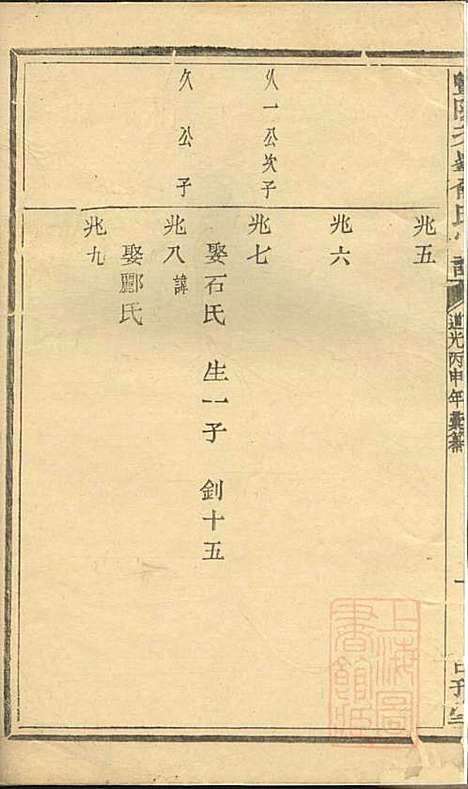 道光丙申年彙纂
兆五
兆六
久一公次子
兆七
娶石氏 生一子 釗十五
久 公 子
兆八 諱
娶酈氏
兆九
上海圖
書館藏